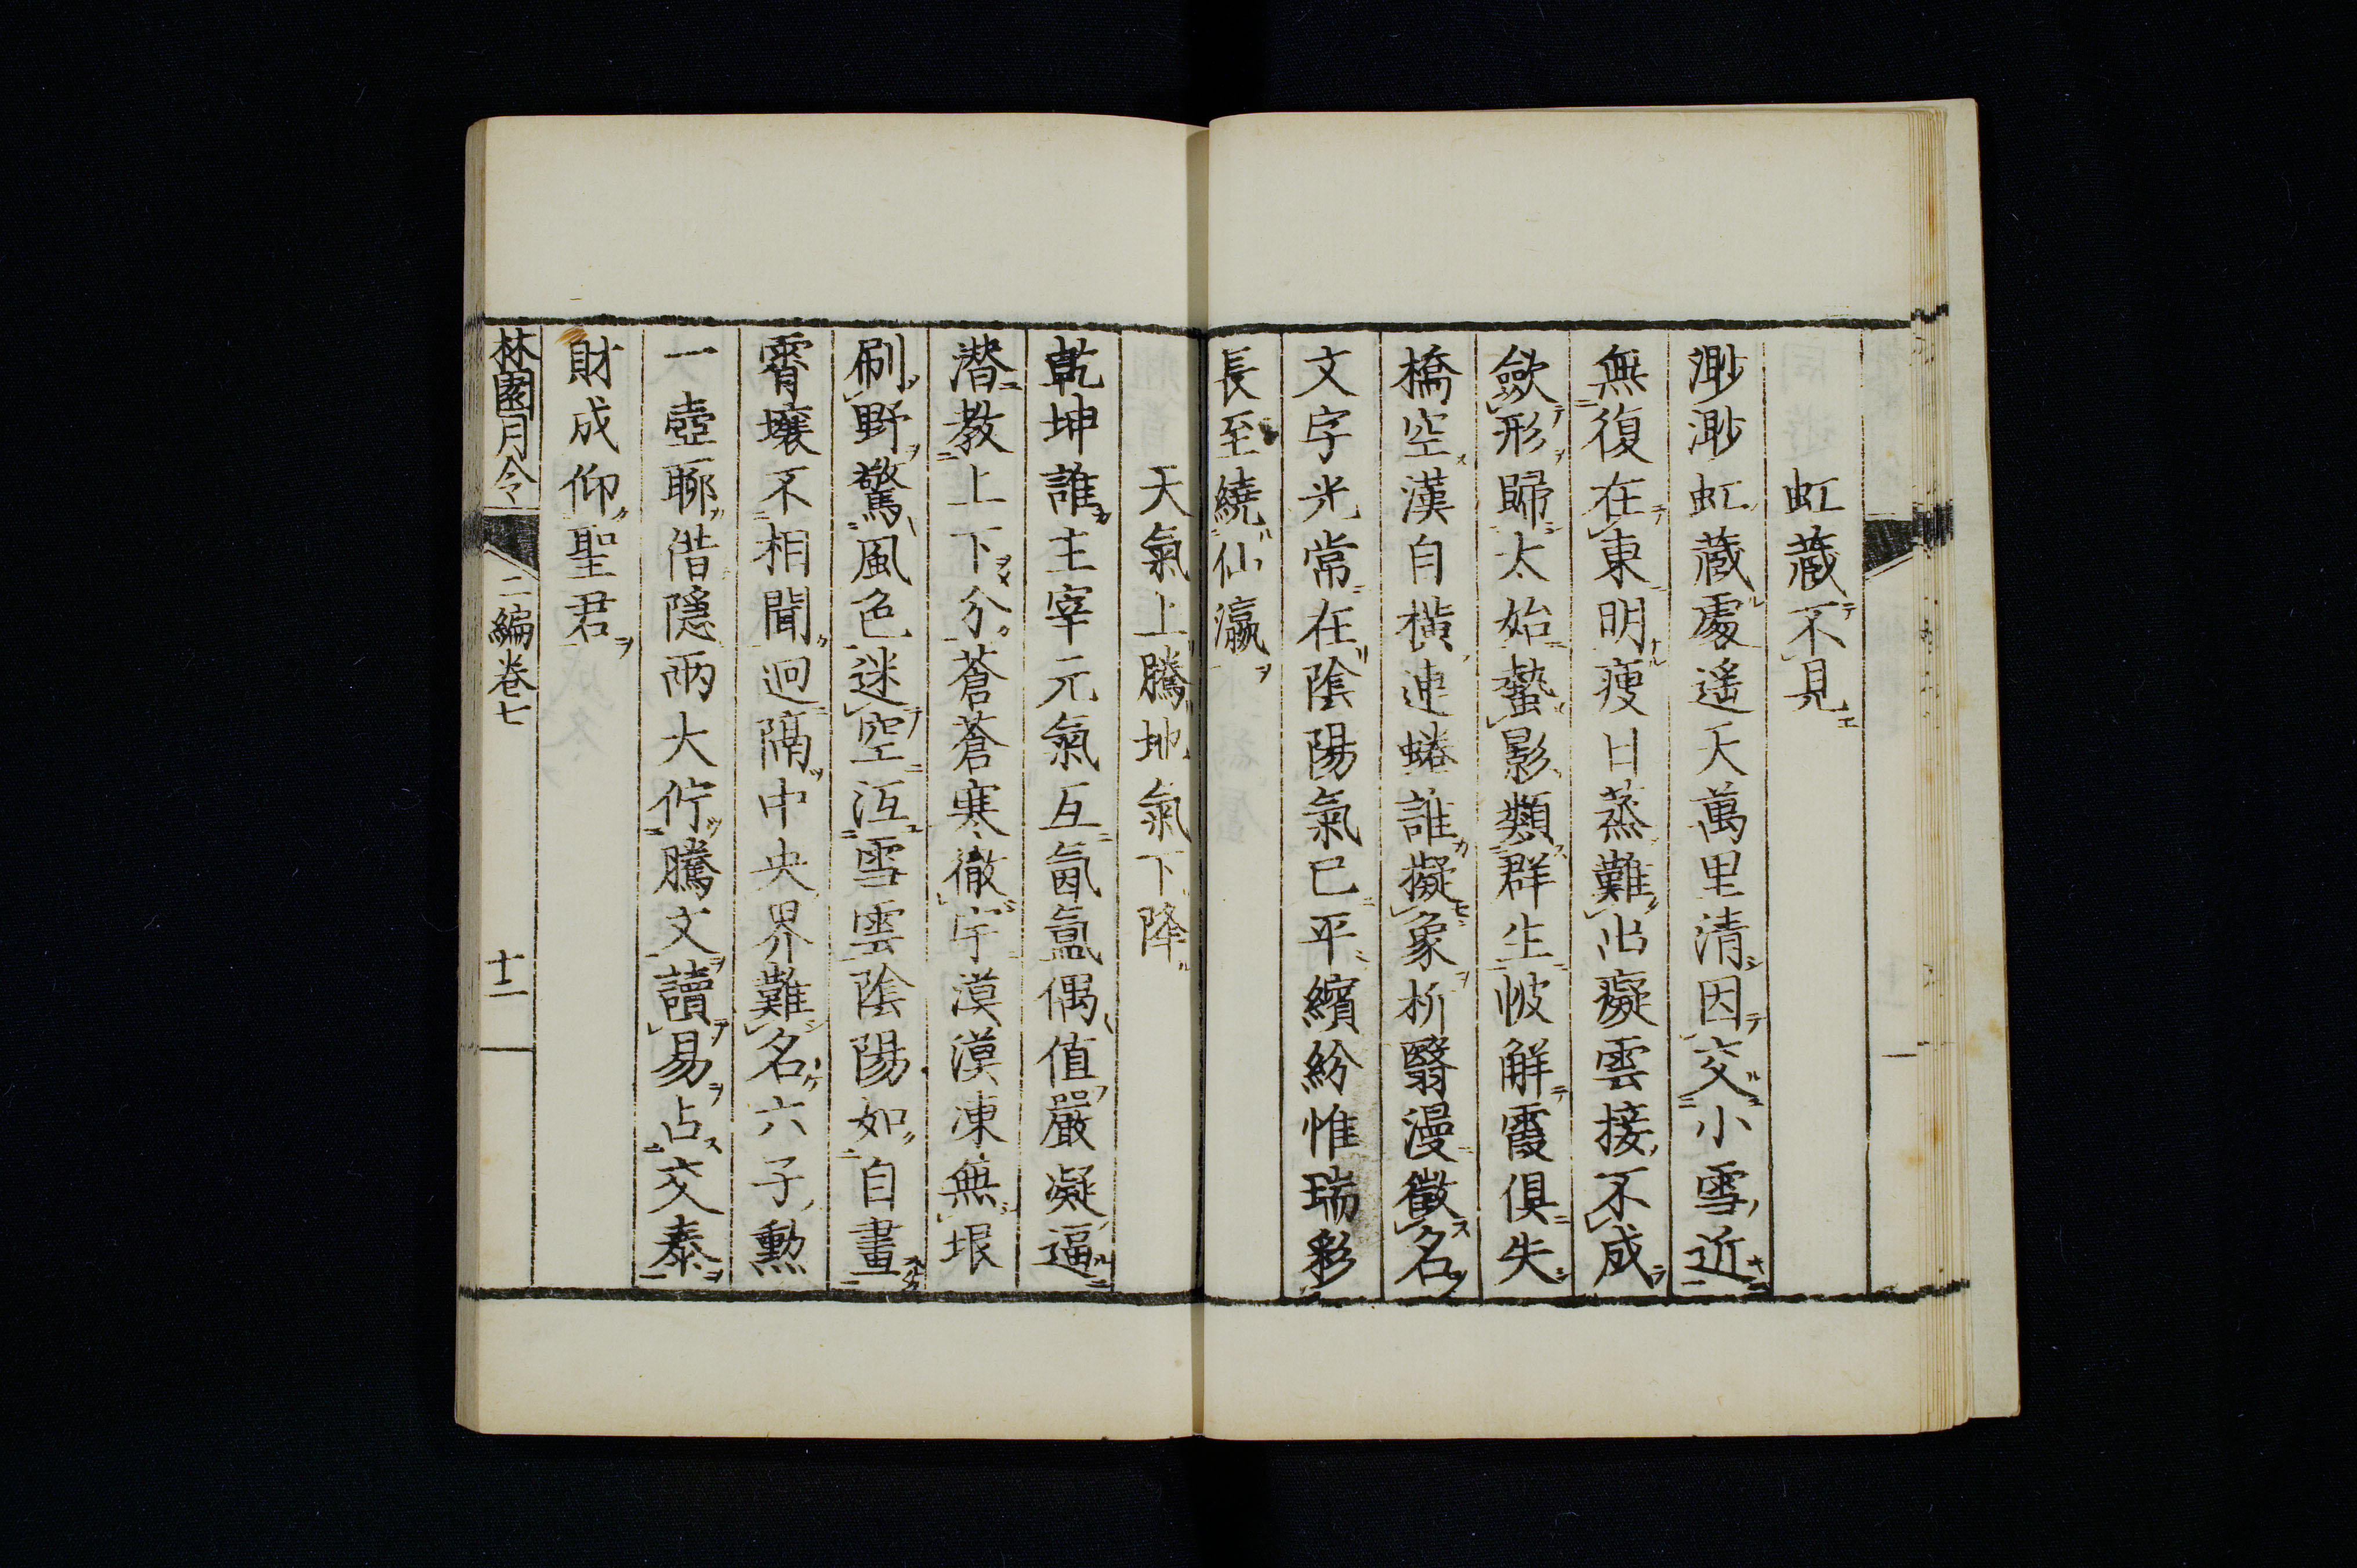 虹藏不見
渺渺虹藏處遙天萬里清因交小雪近
無復在東明瘦日蒸難凝雲接不成
斂形歸太始蟄影類群生帔解霞俱失
橋空漢自橫連蜷誰擬象析翳漫徵名
文字光常在陰陽氣已平繽紛惟瑞彩
長至繞仙瀛
天氣上騰地氣下降
乾坤誰主宰元氣互氤氳偶值嚴凝逼
潛教上下分蒼蒼寒徹宇漠漠凍無垠
刷野驚風色迷空沍雪雲陰陽如自畫
霄壤不相聞迥隔中央界難名六子勲
一壺聊借隱兩大佇騰文讀易占交泰
財成仰聖君
林園月令
二編卷七
十二